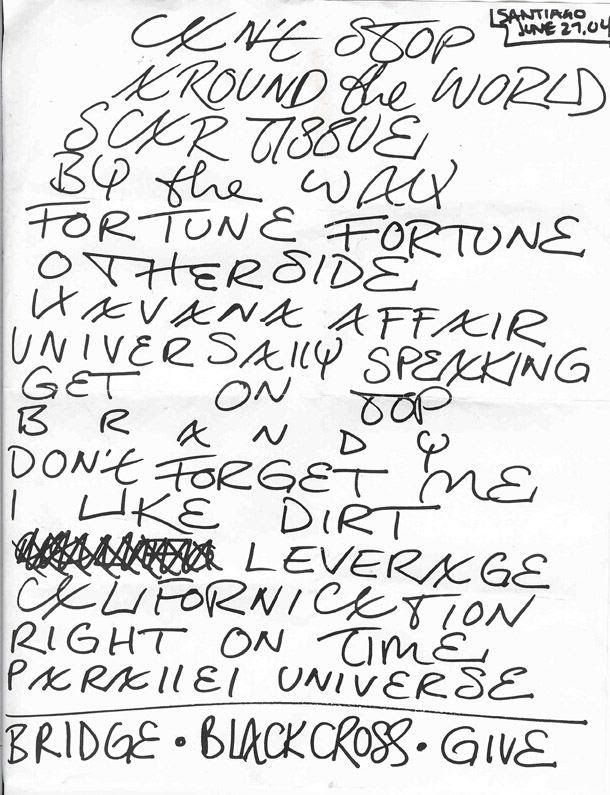 SANTIAGO
JUNE 29.04
CAN't STOP
AROUND the WORLD
SCAR TISSUE
BY the WAY
FORTUNE FORTUNE
OTHERSIDE
HAVANA AFFAIR
UNIVERSAllY SPEAKING
GET ON TOP
BRANDY
DON't FORGET ME
I LIKE DIRT
LEVERAGE
CALIFORNICATION
RIGHT ON TIME
PARAllEl UNIVERSE
BRIDGE • BLACKCROSS • GIVE